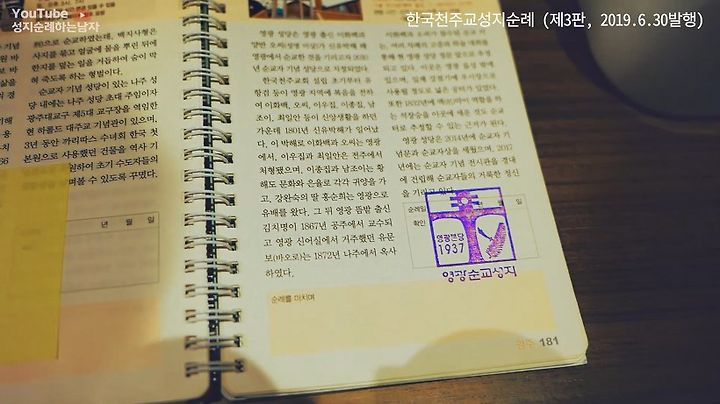 YouTube
성지순례하는남자
한국천주교성지순례 (제3판, 2019.6.30발행)
으로 순교하였는데, 백지사형은
사지를 묶고 얼굴에 물을 뿌린 뒤에
한지를 덮는 일을 거듭하여 숨이 막
혀 죽도록 하는 형벌이다.
순교자 기념 성당이 있는 나주 성
당 내에는 나주 성당 초대 주임이자
광주대교구 제5대 교구장을 역임한
현 하롤드 대주교 기념관이 있으며,
3년 동안 까리따스 수녀회 한국 첫
본원으로 사용했던 건물을 역사 기
하여 초기 수도자들의
볼 수 있도록 꾸몄다.
년 월 일
영광 성당은 영광 출신 이화백과
양반 오씨(성명 미상)가 신유박해 때
영광에서 순교한 것을 기리고자 20
년 순교자 기념 성당으로 지정되었다.
한국천주교회 설립 초기부터 유
항검 등이 영광 지역에 복음을 전하
여 이화백, 오씨, 이우집, 이종집, 남
조이, 최일안 등이 신앙생활을 하던
가운데 1801년 신유박해가 일어났
다. 이 박해로 이화백과 오씨는 영광
에서, 이우집과 최일안은 전주에서
처형됐으며, 이종집과 남조이는 황
해도 문화와 은율로 각각 귀양을 가
고, 강완숙의 딸 홍순희는 영광으로
유배를 왔다. 그 뒤 영광 뜸밭 출신
김치명이 1867년 공주에서 교수되
고 영광 신어실에서 거주했던 유문
보(바오로)는 1872년 나주에서 옥사
하였다.
이화백과 오씨가
또한 1832년에
영광 성당은 2014년에 순교자 기
념문과 순교자상을 세웠으며, 2017
년에는 순교자 기념 전시관을 경내
에 건립해 순교자들의 거룩한 정신
을 기리고 있다.
순례일
월 일
확인
영광성당
1937
영광순교성지
순례를 마치며
광주 181